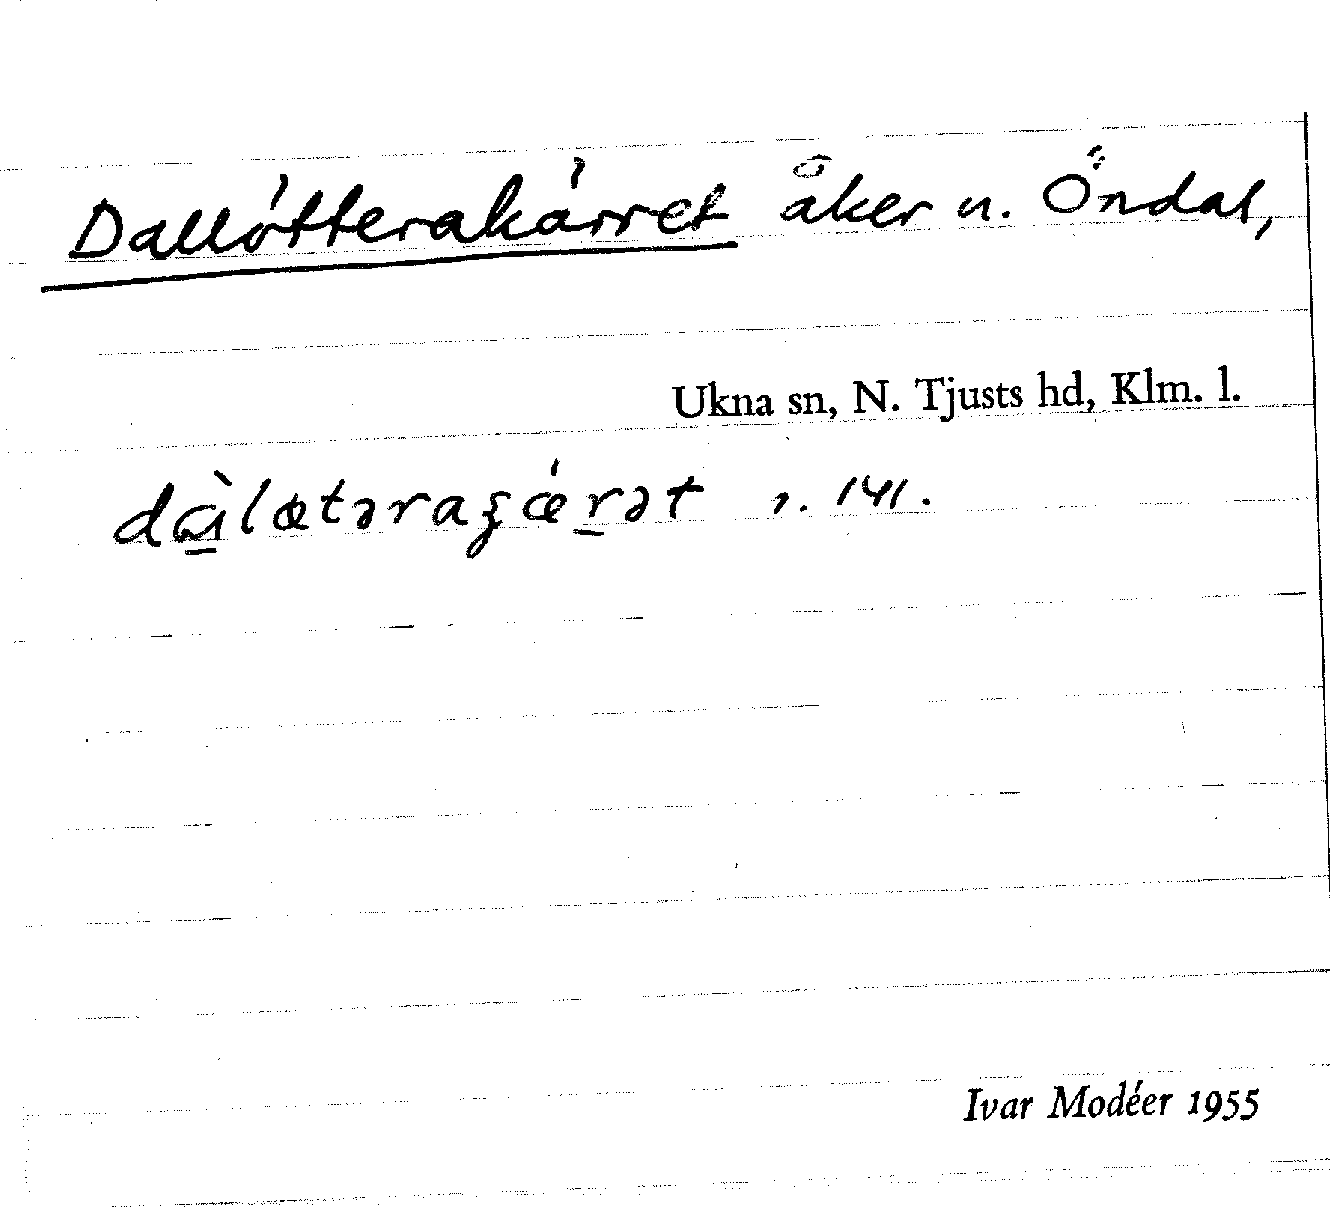 Dallötterakärret åker u. Öndal,
Ukna sn, N. Tjusts hd, Klm. l.
dɑ̱̀lœtəraʒǽṟət 141.
Ivar Modéer 1955